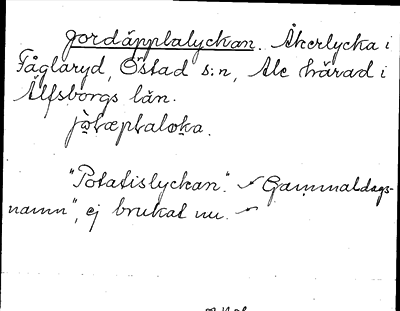 Jordäpplalyckan. Åkerlycka i
Fåglaryd, Östad s:n, Ale härad i
Älfsborgs län.
jò̤tæplalo̤ka.
"Potatislyckan". – Gammaldags-
namn", ej brukat nu. –